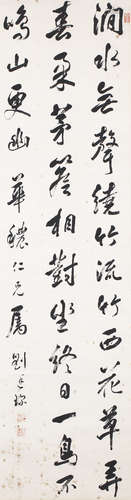 澗水無聲繞竹流竹西花草弄
春柔茅簷相對坐終日一鳥不
鳴山更幽 華穠仁兄屬 劉廷琛